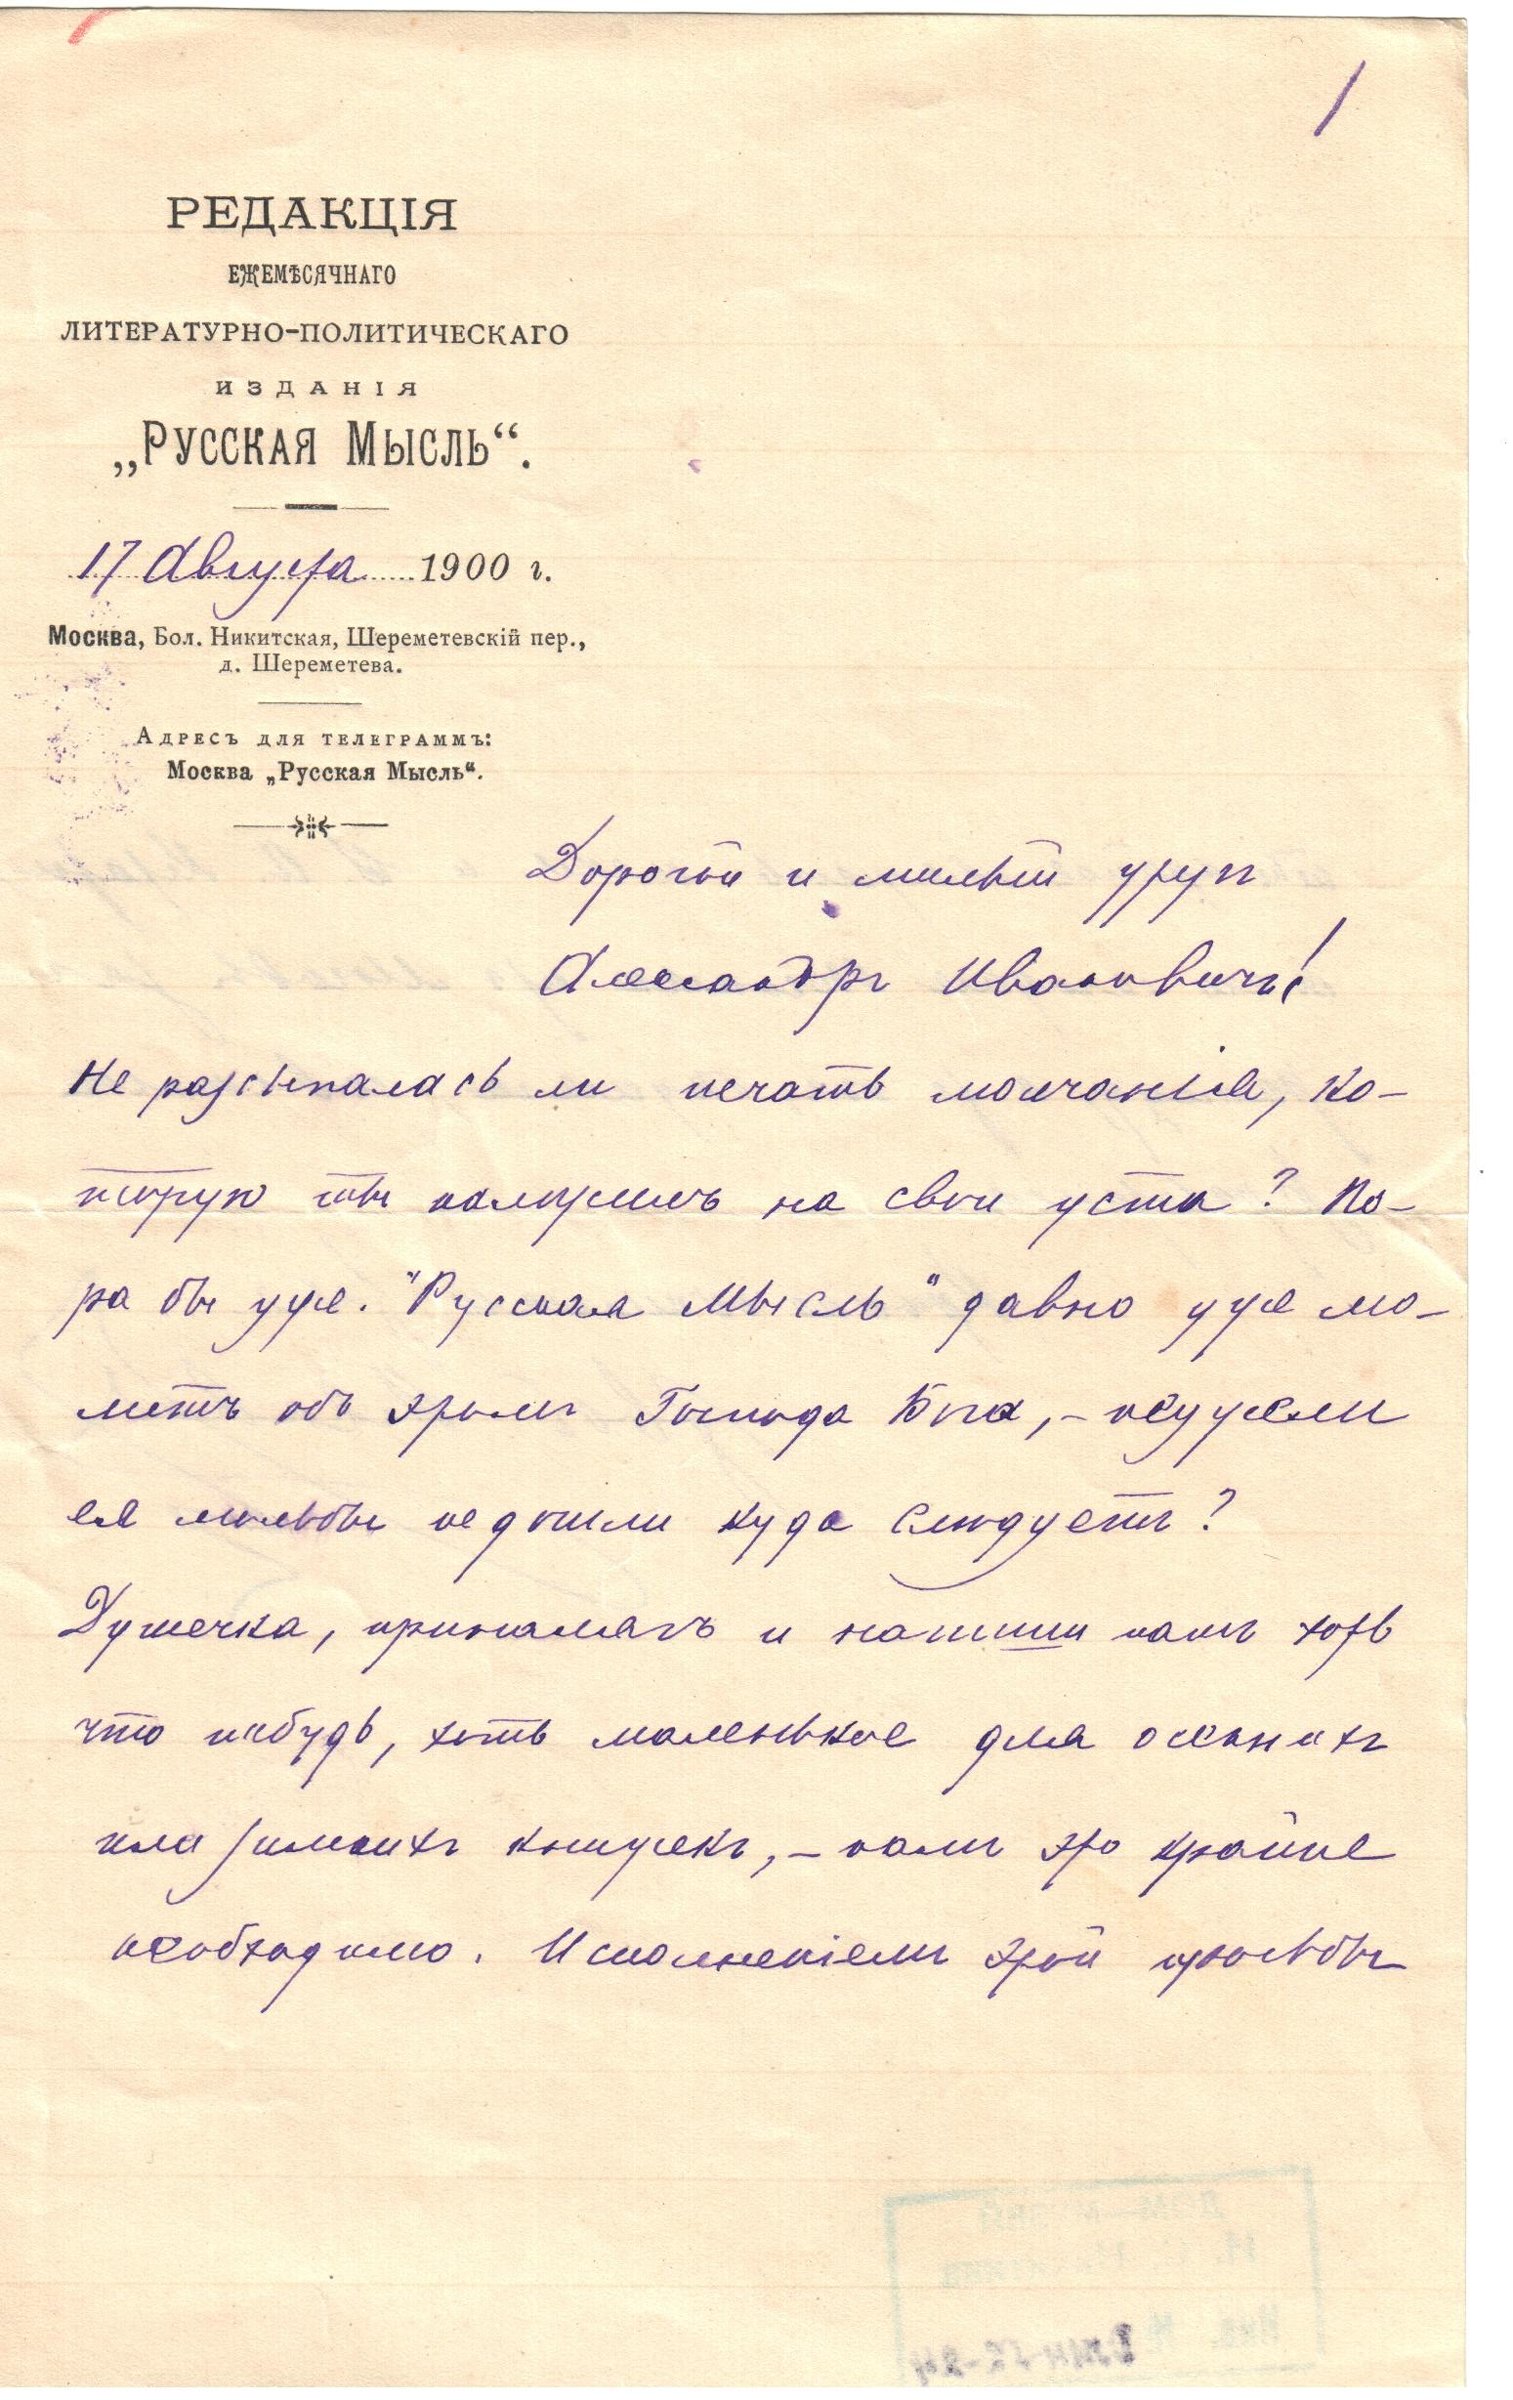 РЕДАКЦІЯ
ЕЖЕМѢСЯЧНАГО
ЛИТЕРАТУРНО-ПОЛИТИЧЕСКАГО
ИЗДАНІЯ
„РУССКАЯ МЫСЛЬ“.
17 Августа 1900 г.
Москва, Бол. Никитская, Шереметевскій пер.,
д. Шереметева.
Адресъ для телеграммъ:
Москва „Русская Мысль“.
Дорогой и милый другъ
Александръ Ивановичъ!
Не разсыпалась ли печать молчанія, ко-
торую ты наложилъ на свои уста? По-
ра бы уже. "Русская Мысль" давно уже мо-
литъ объ этомъ Господа Бога, - неужели
ея мольбы не дошли куда слѣдуетъ?
Душечка, приналягъ и напиши намъ хоть
что нибудь, хоть маленькое для осеннихъ
или зимнихъ книжекъ, - намъ это крайне
необходимо. Исполненіемъ этой просьбы